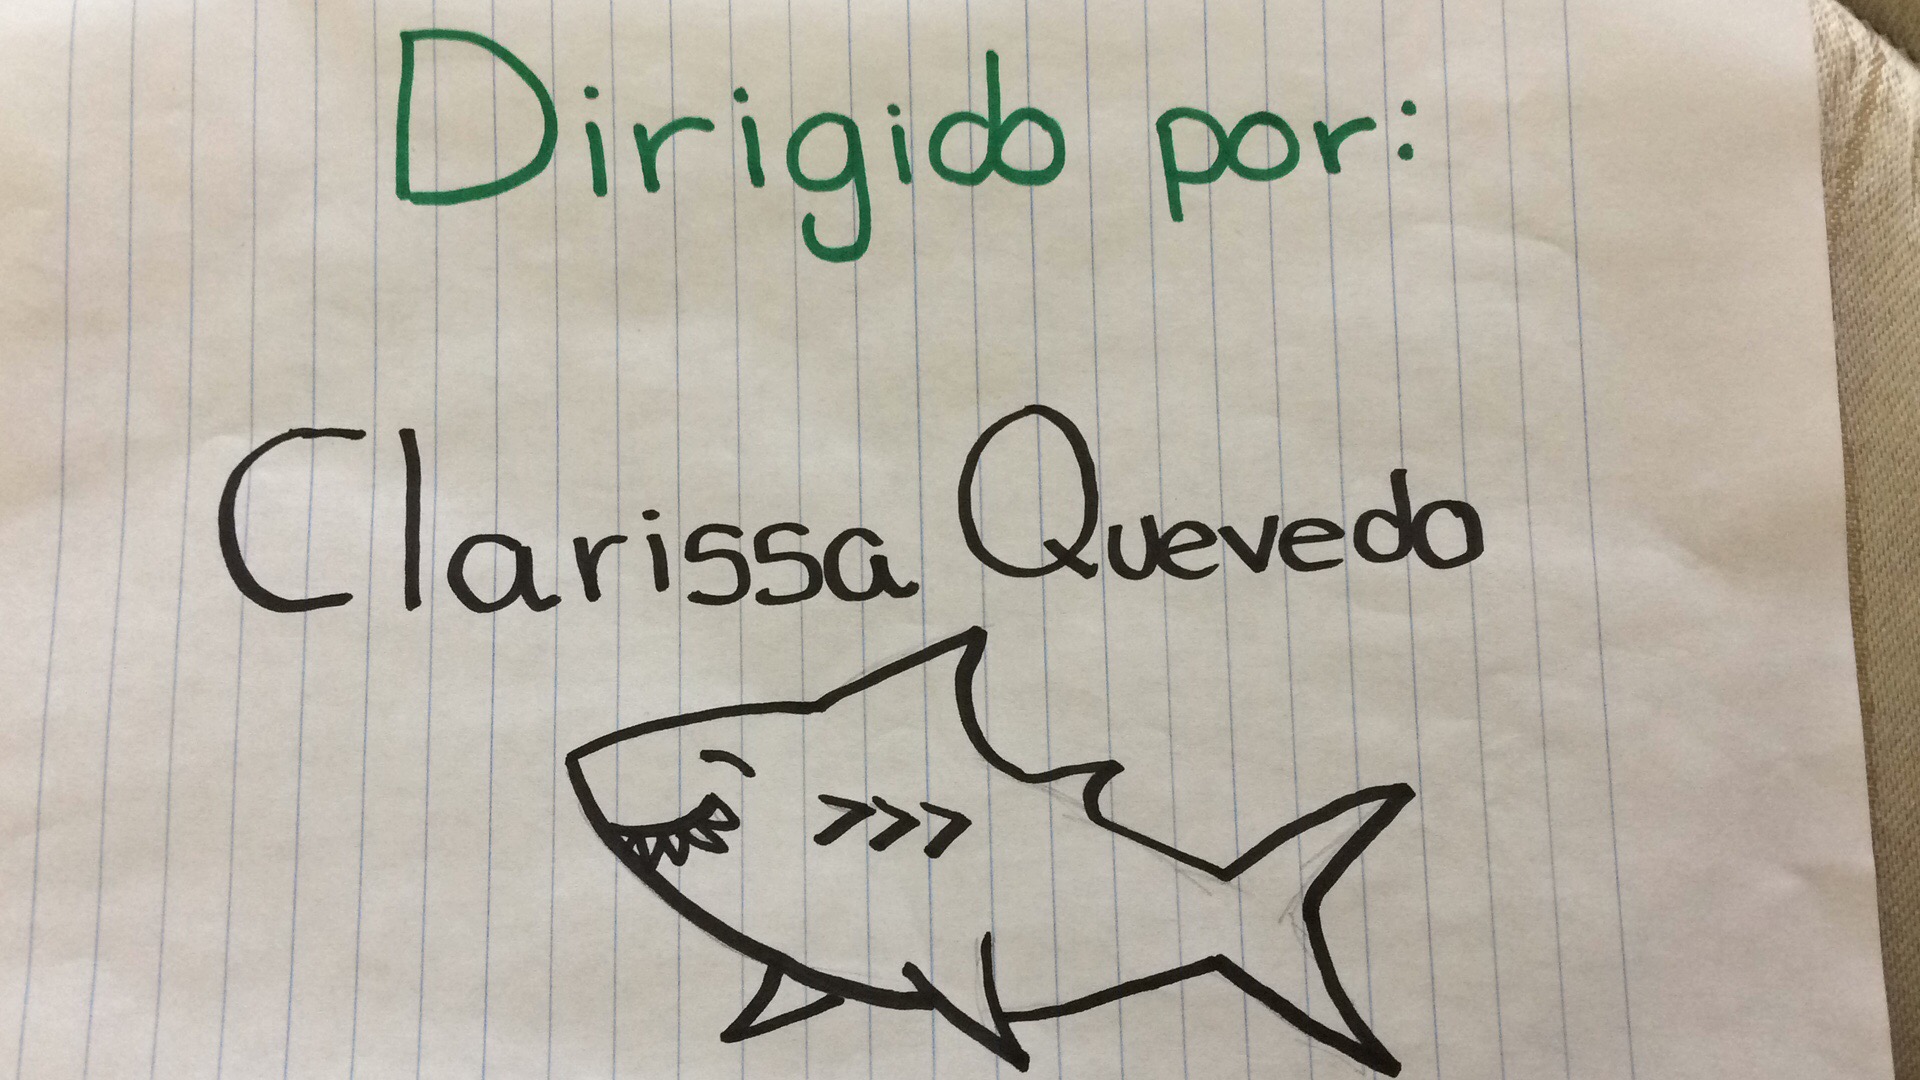 Dirigido por:
Clarissa Quevedo